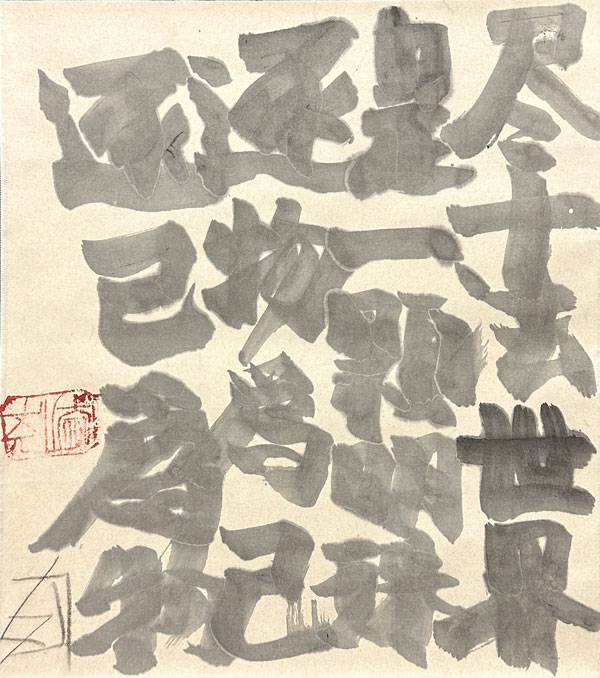 尽十方世界
是一顆明珠
逐物為己
逐己為物